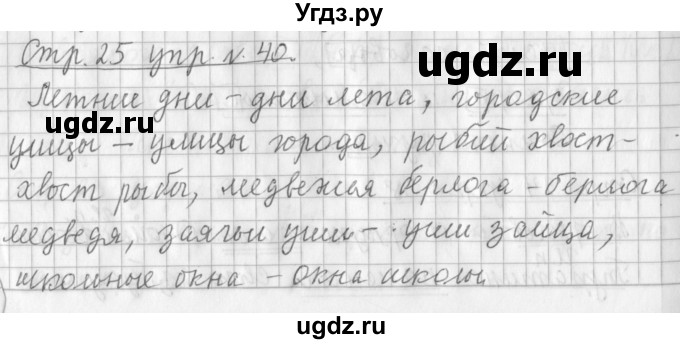 Угдз.ру
Стр. 25 упр. № 40.
ugdz.ru
ugdz.ru
Летние дни – дни лета, городские
улицы – улицы города, рыбий хвост –
хвост рыбы, медвежья берлога – берлога
медведя, заячьи уши – уши зайца,
школьные окна – окна школы.
ugdz.ru
ugdz.ru
Угдз.ру